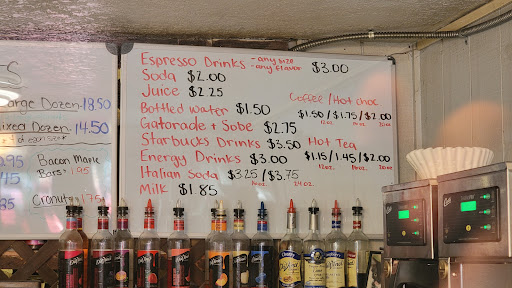 arge Dozen-18.50
ixed Dozen 14.50
Bacon Maple
Bars: 1.95
Cronuts 1.75
Espresso Drinks -any size $3.00
-any flavor
Soda $2.00
Juice $2.25
Bottled water $1.50
Gatorade + Sobe $2.75
Starbucks Drinks $3.50
Energy Drinks $3.00
Italian Soda $3.25/$3.75
16oz. 24oz.
Milk $1.85
Coffee/Hot choc
$1.50/$1.75/$2.00
12oz 16oz 20oz
Hot Tea
$1.15/1.45/$2.00
12oz. 16oz 20oz
DaVinci